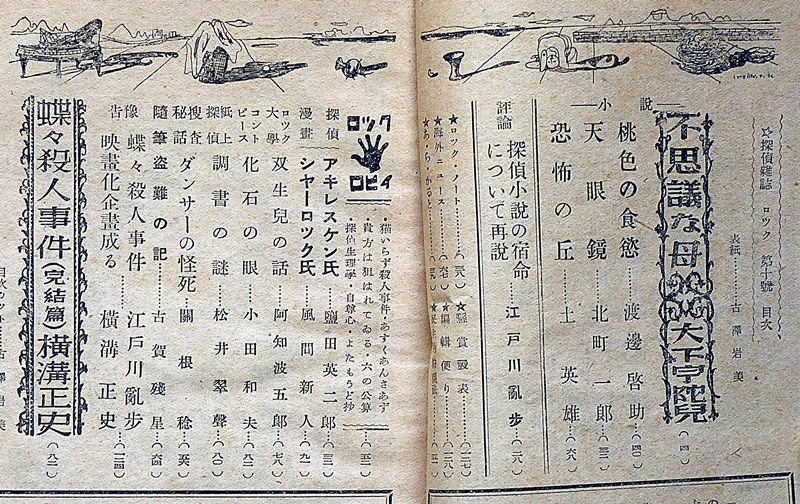 ☆探偵雜誌 ロック 第十號 目次
表紙……古澤岩美
不思議な母 大下宇陀兒……(四)
小說
桃色の食慾……渡邊啓助……(四〇)
天眼鏡……北町一郎……(三二)
恐怖の丘……土英雄……(六八)
評論
探偵小說の宿命について再說……江戸川亂步……(二八)
★ロック・ノート
★海外ニュース
★あ・ら・かると
★懸賞發表……(一二七)
★編輯便り……(一二八)
ロック ロビイ
・猫いらず殺人事件・あすくあんさあず
・貴方は狙はれてゐる・六の公算
・探偵生理學・自尊心・よたもうど抄
探偵漫畫
アキレスケン氏……鹽田英二郎
シャーロック氏……風間新人
ロック大學 双生兒の話……阿知波五郎
コントピース 化石の眼……小田和夫
紙上探偵 調書の謎……松井翠聲
捜査秘話 ダンサーの怪死……關根稔
隨筆 盜難の記……古賀殘星
豫告 蝶々殺人事件 映畫化企畫成る
江戸川亂步
橫溝正史……(二四)
蝶々殺人事件(完結篇)橫溝正史……(八二)